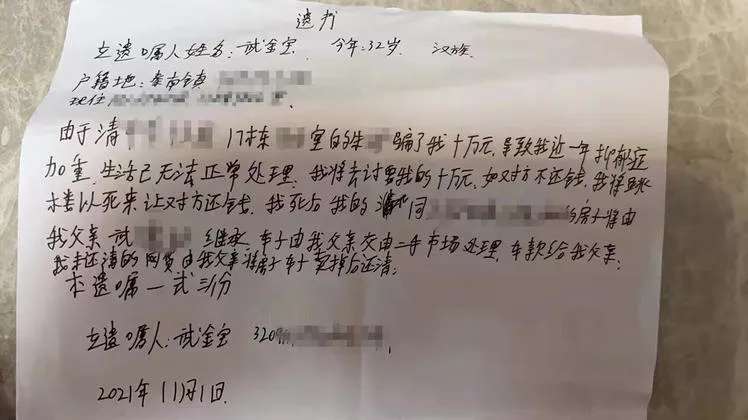 遗书
立遗嘱人姓名:试金宝 今年:32岁 汉族
户籍地:秦南镇
现住
由于清 17栋 室的朱 骗了我十万元,导致我近一年抑郁症
加重,生活已无法正常处理,我将去讨要我的十万元,如对方不还钱,我将跳
楼以死来让对方还钱,我死后我的 同 的房子将由
我父亲试 继承,车子由我父亲交由二手市场处理,车款给我父亲;
我未还清的网贷由我父亲将房子车子卖掉后还清;
本遗嘱一式三份
立遗嘱人:试金宝 3209
2021年11月1日